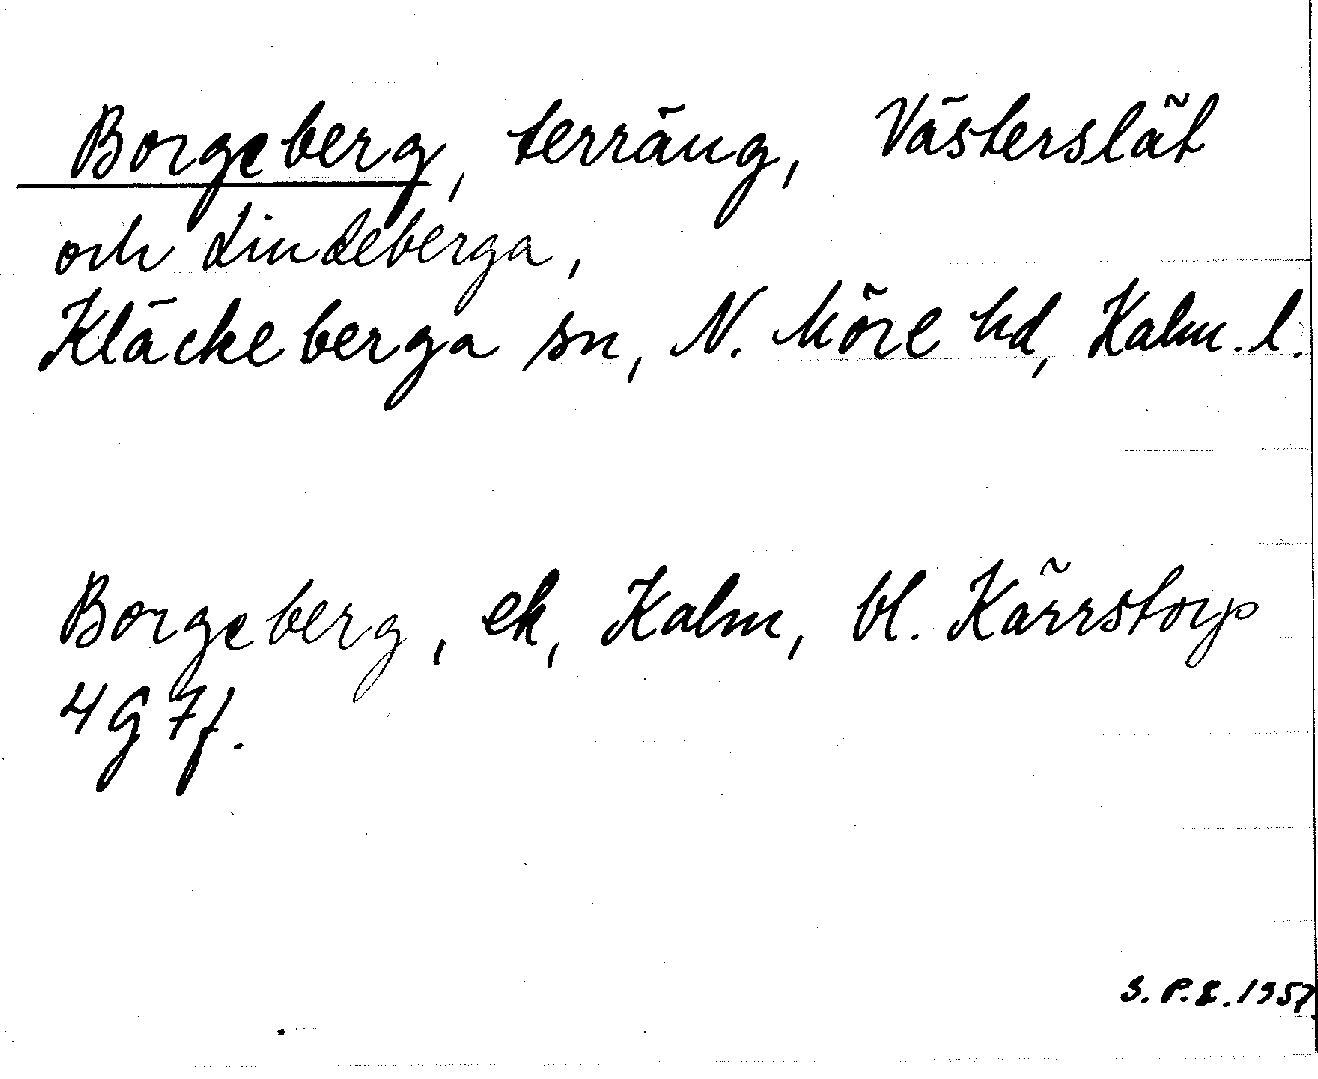 Borgeberg, terräng, Västerslät
och Lindeberga,
Kläckeberga sn, N. Möre hd, Kalm. l.
Borgeberg, ek, Kalm, bl. Kärrstorp
4G7f.
S.P.E. 1957